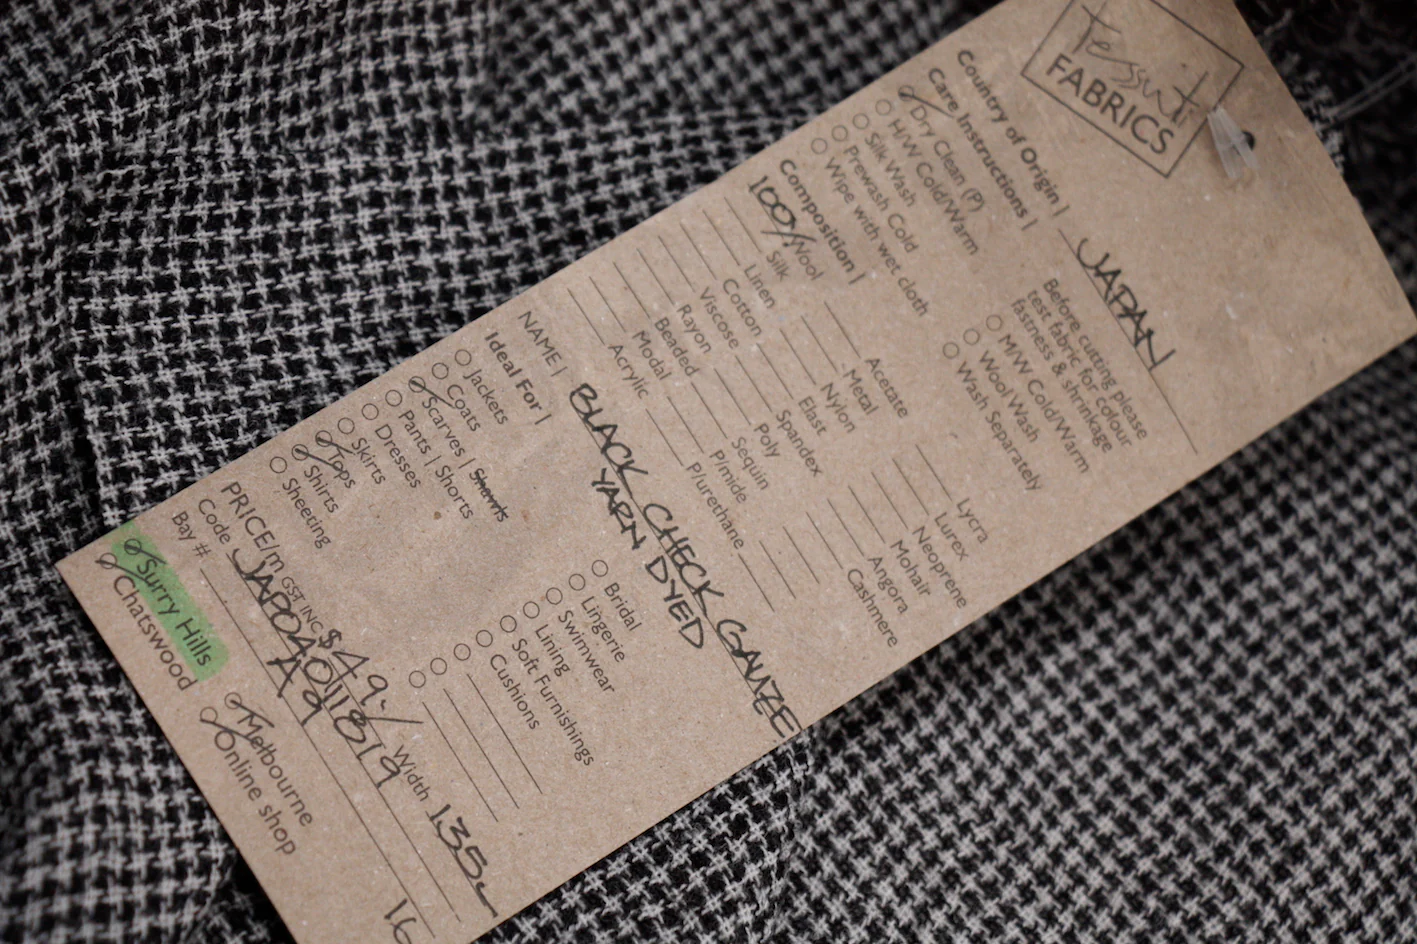 Tessuti
FABRICS
Country of Origin | JAPAN
Care Instructions |
Dry Clean (P)
H/W Cold/Warm
Silk Wash
Prewash Cold
Wipe with wet cloth
Before cutting please
test fabric for colour
fastness & shrinkage
M/W Cold/Warm
Wool Wash
Wash Separately
Composition |
100% Wool
Silk
Linen
Cotton
Viscose
Rayon
Beaded
Modal
Acrylic
Acetate
Metal
Nylon
Elast
Spandex
Poly
Sequin
P/mide
P/urethane
Lycra
Lurex
Neoprene
Mohair
Angora
Cashmere
NAME | BLACK CHECK GAUZE
YARN DYED
Ideal For |
Jackets
Coats
Scarves | Shawls
Pants | Shorts
Dresses
Skirts
Tops
Shirts
Sheeting
Bridal
Lingerie
Swimwear
Lining
Soft Furnishings
Cushions
PRICE/m GST INC $49.- Width 135
Code JAP04011819
Bay # A9
16
Surry Hills
Chatswood
Melbourne
Online shop